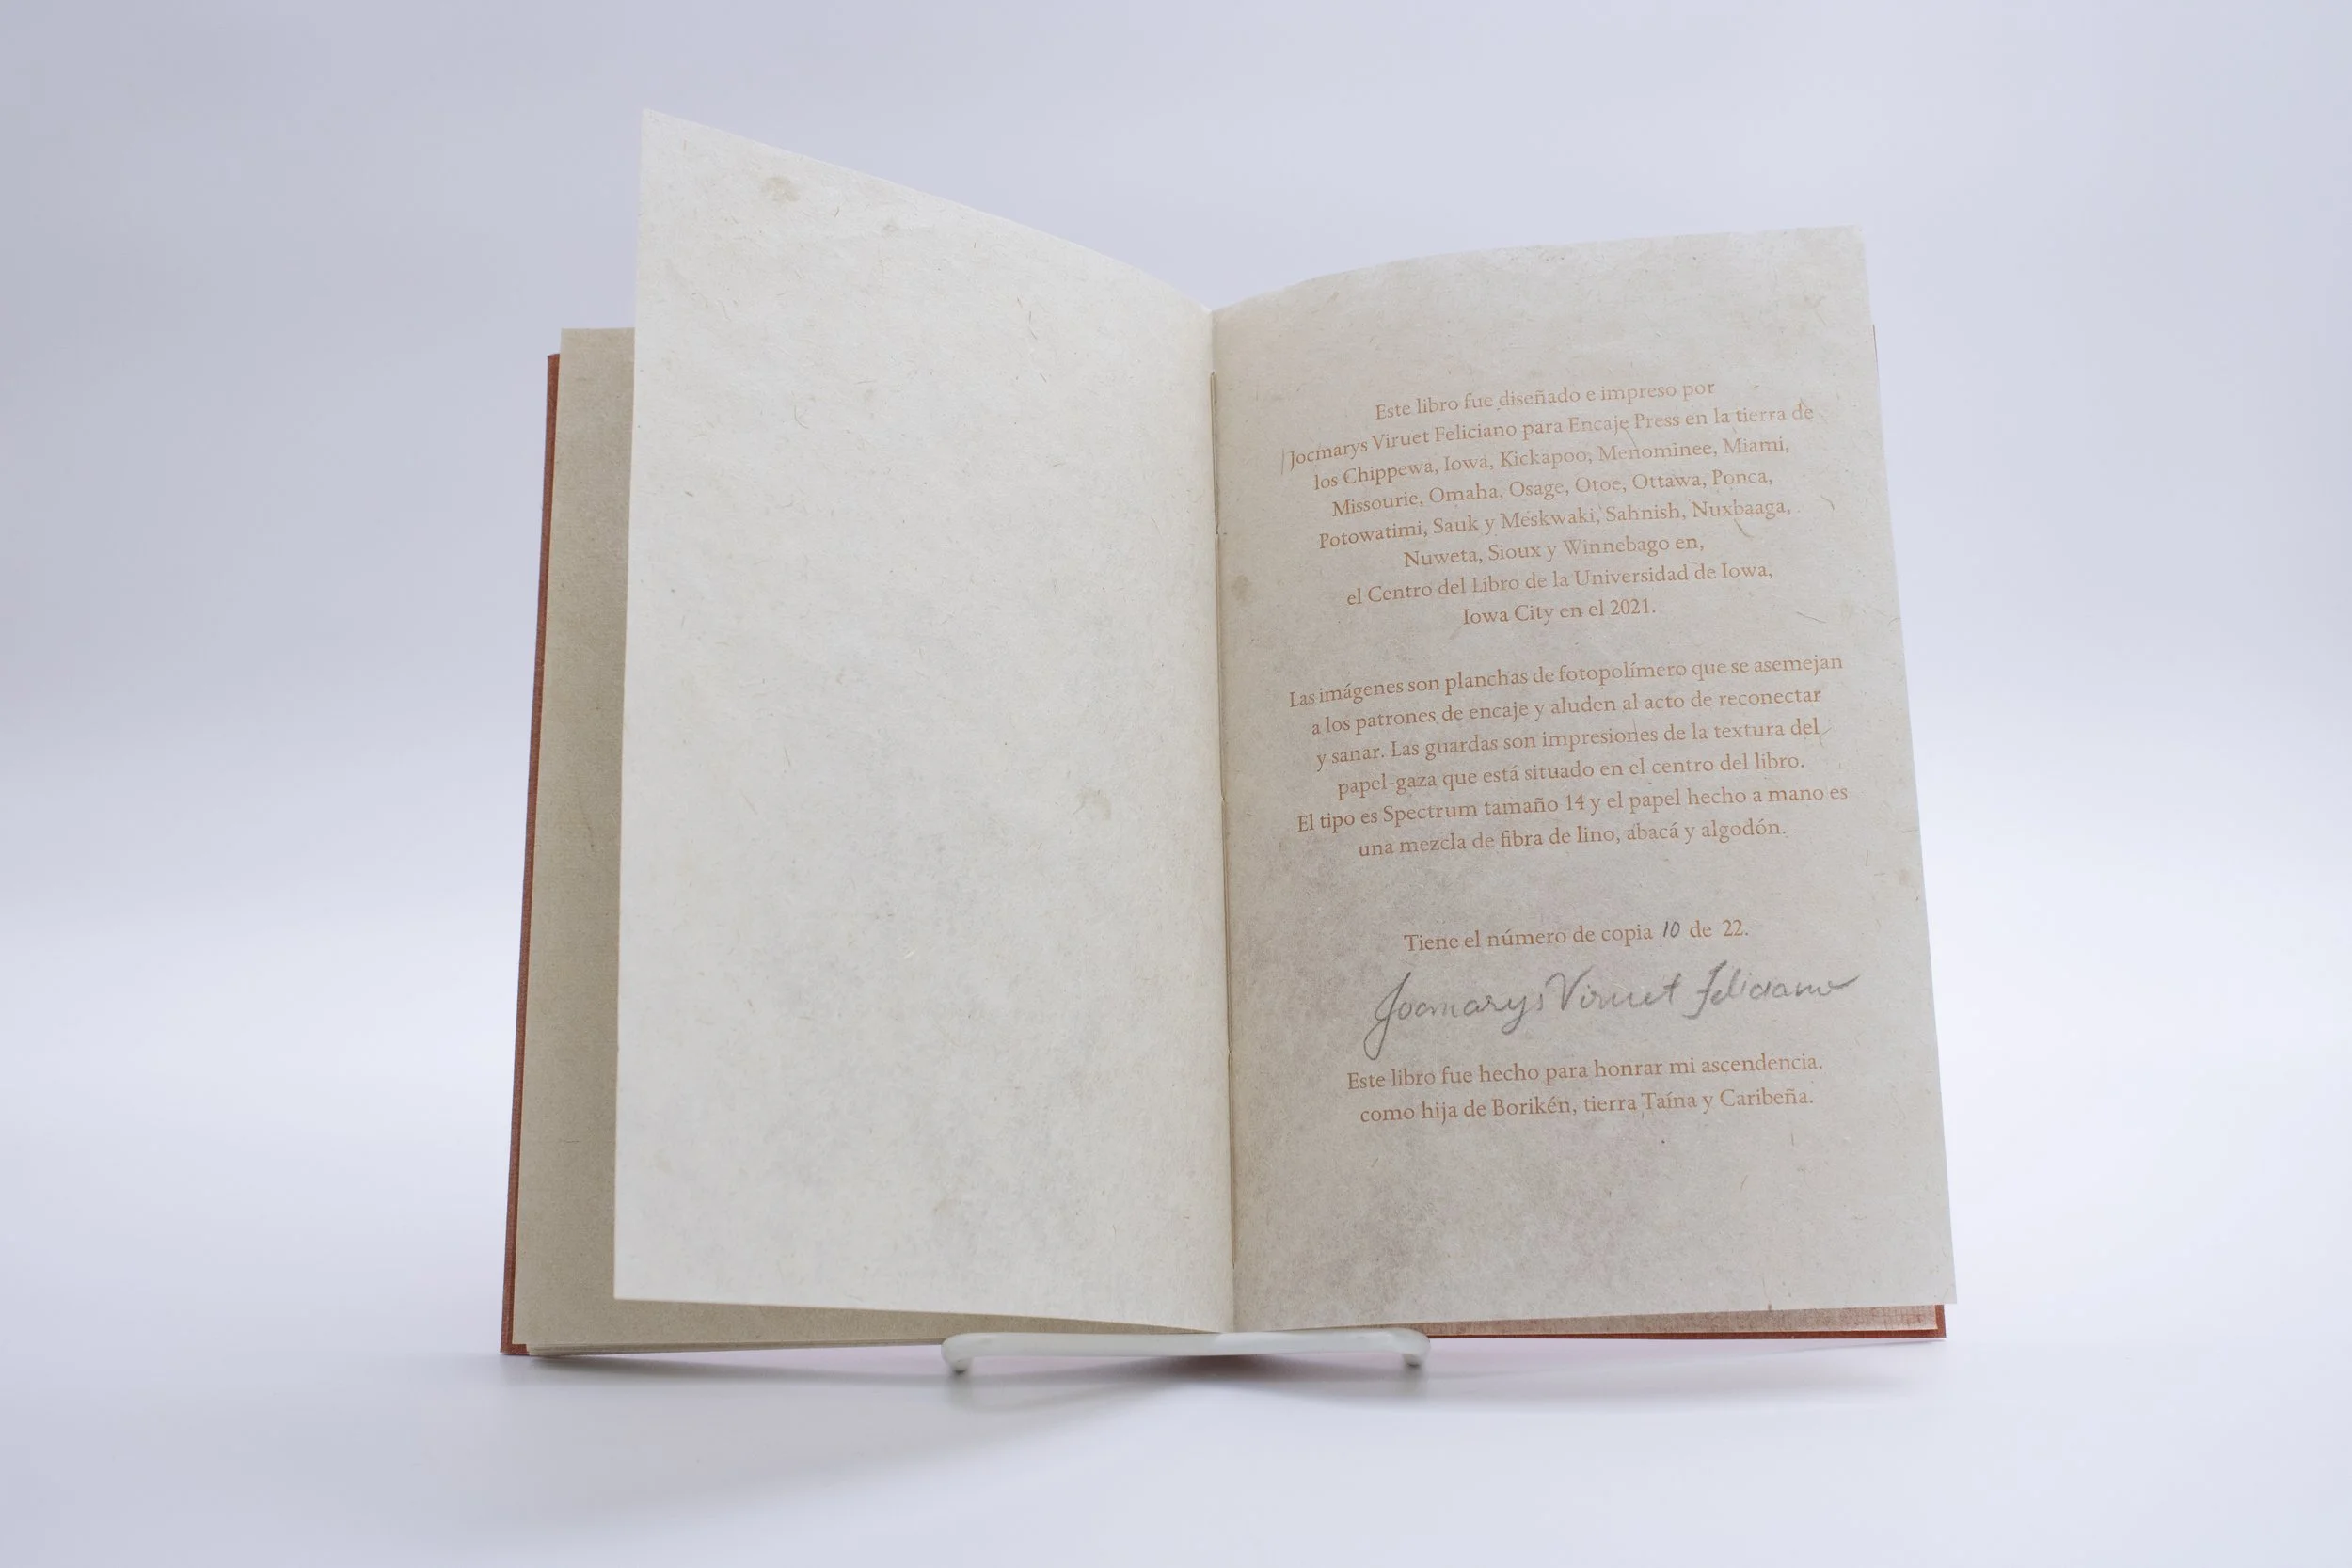 Este libro fue diseñado e impreso por
Jocmarys Viruet Feliciano para Encaje Press en la tierra de
los Chippewa, Iowa, Kickapoo, Menominee, Miami,
Missourie, Omaha, Osage, Otoe, Ottawa, Ponca,
Potowatimi, Sauk y Meskwaki, Sahnish, Nuxbaaga,
Nuweta, Sioux y Winnebago en,
el Centro del Libro de la Universidad de Iowa,
Iowa City en el 2021.
Las imágenes son planchas de fotopolímero que se asemejan
a los patrones de encaje y aluden al acto de reconectar
y sanar. Las guardas son impresiones de la textura del
papel-gaza que está situado en el centro del libro.
El tipo es Spectrum tamaño 14 y el papel hecho a mano es
una mezcla de fibra de lino, abacá y algodón.
Tiene el número de copia 10 de 22.
Jocmarys Viruet Feliciano
Este libro fue hecho para honrar mi ascendencia.
como hija de Borikén, tierra Taína y Caribeña.